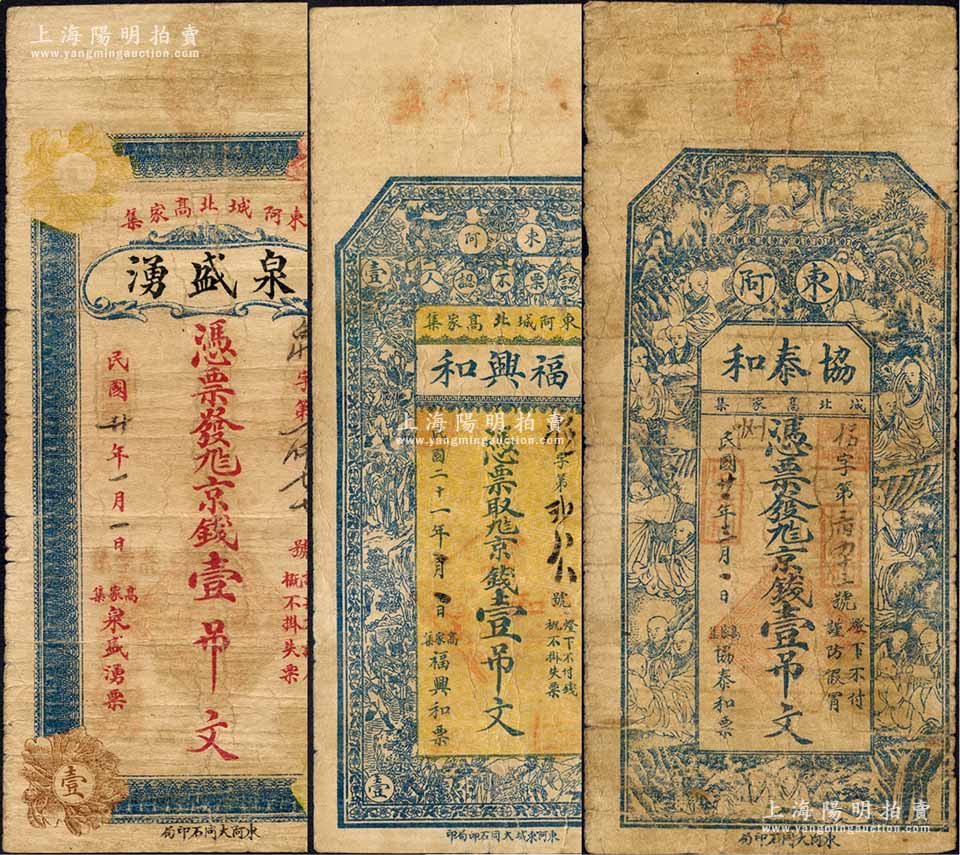 上海陽明拍賣
www.yangmingauction.com
東阿城北高家集
泉盛湧
字第
號
概不掛失票
憑票發兌京錢壹吊文
民國廿年一月一日
高家集
泉盛湧票
壹
東阿大同石印局
東阿
認票不認人
壹
東阿城北高家集
福興和
字第
號
燈下不付錢
概不掛失票
憑票取兌京錢壹吊文
民國二十一年
月
日
高家集
福興和票
壹
東阿東城大同石印局印
上海陽明拍賣
www.yangmingauction.com
東阿
協泰和
城北高家集
字第
號
燈下不付
謹防假冒
憑票發兌京錢壹吊文
民國廿二年
月
日
高家集
協泰和票
東阿大同石印局
上海陽明拍賣
www.yangmingauction.com